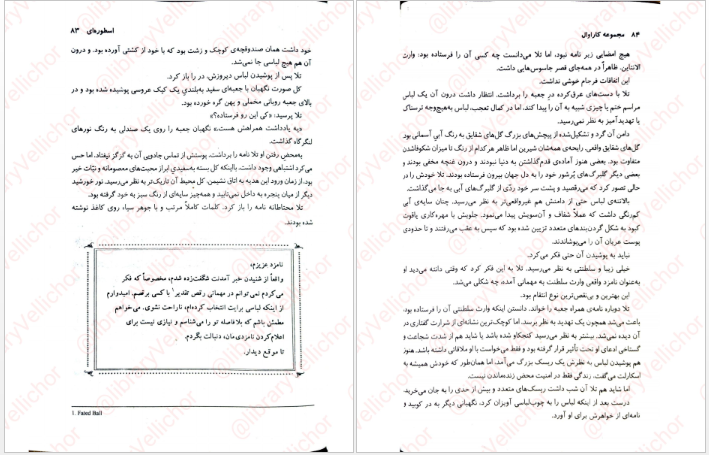 اسطوره‌ای ۸۳
خود داشت همان صندوقچه‌ی کوچک و زشت بود که با خود از کشتی آورده بود. و درون
آن هم هیچ لباسی جا نمی‌شد.
تلا پس از پوشیدن لباس دیروزش، در را باز کرد.
کل صورت نگهبان با جعبه‌ای سفید به‌بلندی یک کیک عروسی پوشیده شده بود و در
بالای جعبه روبانی مخملی و پهن گره خورده بود.
تلا پرسید: «کی این رو فرستاده؟»
«یه یادداشت همراهش هست.» نگهبان جعبه را روی یک صندلی به رنگ نورهای
لنگرگاه گذاشت.
به‌محض رفتن او تلا نامه را برداشت. پوستش از تماس جادویی آن به گزگز نیفتاد. اما حس
می‌کرد اشتباهی وجود داشت.
بود. از زمان ورود این هدیه به اتاق نشیمن، کل محیط آن تاریک‌تر به نظر می‌رسید. نور خورشید
دیگر از میان پنجره به داخل نمی‌تابید و همه‌چیز سایه‌ای از رنگ سبز به خود گرفته بود.
تلا محتاطانه نامه را باز کرد. کلمات کاملاً مرتب و با جوهر سیاه روی کاغذ نوشته
شده بودند.
نامزد عزیزم،
واقعاً از شنیدن خبر آمدنت شگفت‌زده شدم، مخصوصاً که فکر
می‌کردم نمی‌توانم در مهمانی رقص تقدیر۱ با کسی برقصم. امیدوارم
از اینکه لباسی برایت انتخاب کرده‌ام، ناراحت نشوی. می‌خواهم
مطمئن باشم که بلافاصله تو را می‌شناسم و نیازی نیست برای
اعلام‌کردن نامزدی‌مان، دنبالت بگردم.
تا موقع دیدار.
1. Fated Ball
۸۴ مجموعه کاراوال
هیچ امضایی زیر نامه نبود، اما تلا می‌دانست چه کسی آن را فرستاده بود: وارث
الانتاین. ظاهراً در همه‌جای قصر جاسوس‌هایی داشت.
این اتفاقات فرجام خوشی نداشت.
تلا با دست‌های عرق‌کرده در جعبه را برداشت. انتظار داشت درون آن یک لباس
مراسم ختم یا چیزی شبیه به آن را پیدا کند. اما در کمال تعجب، لباس به‌هیچ‌وجه ترسناک
یا تهدیدآمیز به نظر نمی‌رسید.
دامن آن گرد و تشکیل‌شده از پیچش‌های بزرگ گل‌های شقایق به رنگ آبیِ آسمانی بود
متفاوت بود. بعضی هنوز آماده‌ی قدم‌گذاشتن به دنیا نبودند و درون غنچه مخفی بودند و
بعضی دیگر گلبرگ‌های پرشور خود را به دل جهان بیرون فرستاده بودند. تلا خودش را در
حالی تصور کرد که می‌رقصید و پشت سر خود ردّی از گلبرگ‌های آبی به جا می‌گذاشت.
بالاتنه‌ی لباس حتی از دامنش هم غیرواقعی‌تر به نظر می‌رسید. چنان سایه‌ی آبی
کم‌رنگی داشت که عملاً شفاف و آن‌سویش پیدا می‌نمود. جلویش با مهره‌کاری یاقوت
کبود به شکل گردن‌بندهای متعدد تزیین شده بود که سپس به عقب می‌رفتند و تا حدودی
پوست عریان آن را می‌پوشاندند.
نباید به پوشیدن آن حتی فکر می‌کرد.
خیلی زیبا و سلطنتی به نظر می‌رسید. تلا به این فکر کرد که وقتی دانته می‌دید او
به‌عنوان نامزد واقعی وارث سلطنت به مهمانی آمده، چه شکلی می‌شد.
این بهترین و بی‌نقص‌ترین نوع انتقام بود.
تلا دوباره نامه‌ی همراه جعبه را خواند. دانستن اینکه وارث سلطنتی آن را فرستاده بود،
باعث می‌شد همچون یک تهدید به نظر برسد. اما کوچک‌ترین نشانه‌ای از شرارت گفتاری در
آن دیده نمی‌شد. بیشتر به نظر می‌رسید کنجکاو شده باشد یا شاید هم از شدت شجاعت و
گستاخی ادعای او تحت تأثیر قرار گرفته بود و فقط می‌خواست با او ملاقاتی داشته باشد. هنوز
هم پوشیدن لباس به نظرش یک ریسک بزرگ می‌آمد. اما همان‌طور که خودش همیشه به
اسکارلت می‌گفت، زندگی فقط در امنیت محض زنده‌ماندن نیست.
اما شاید هم تلا آن شب داشت ریسک‌های متعدد و بیش از حدی را به جان می‌خرید.
درست بعد از اینکه لباس را به چوب‌لباسی آویزان کرد، نگهبانی دیگر به در کوبید و
نامه‌ای از خواهرش برای او آورد.